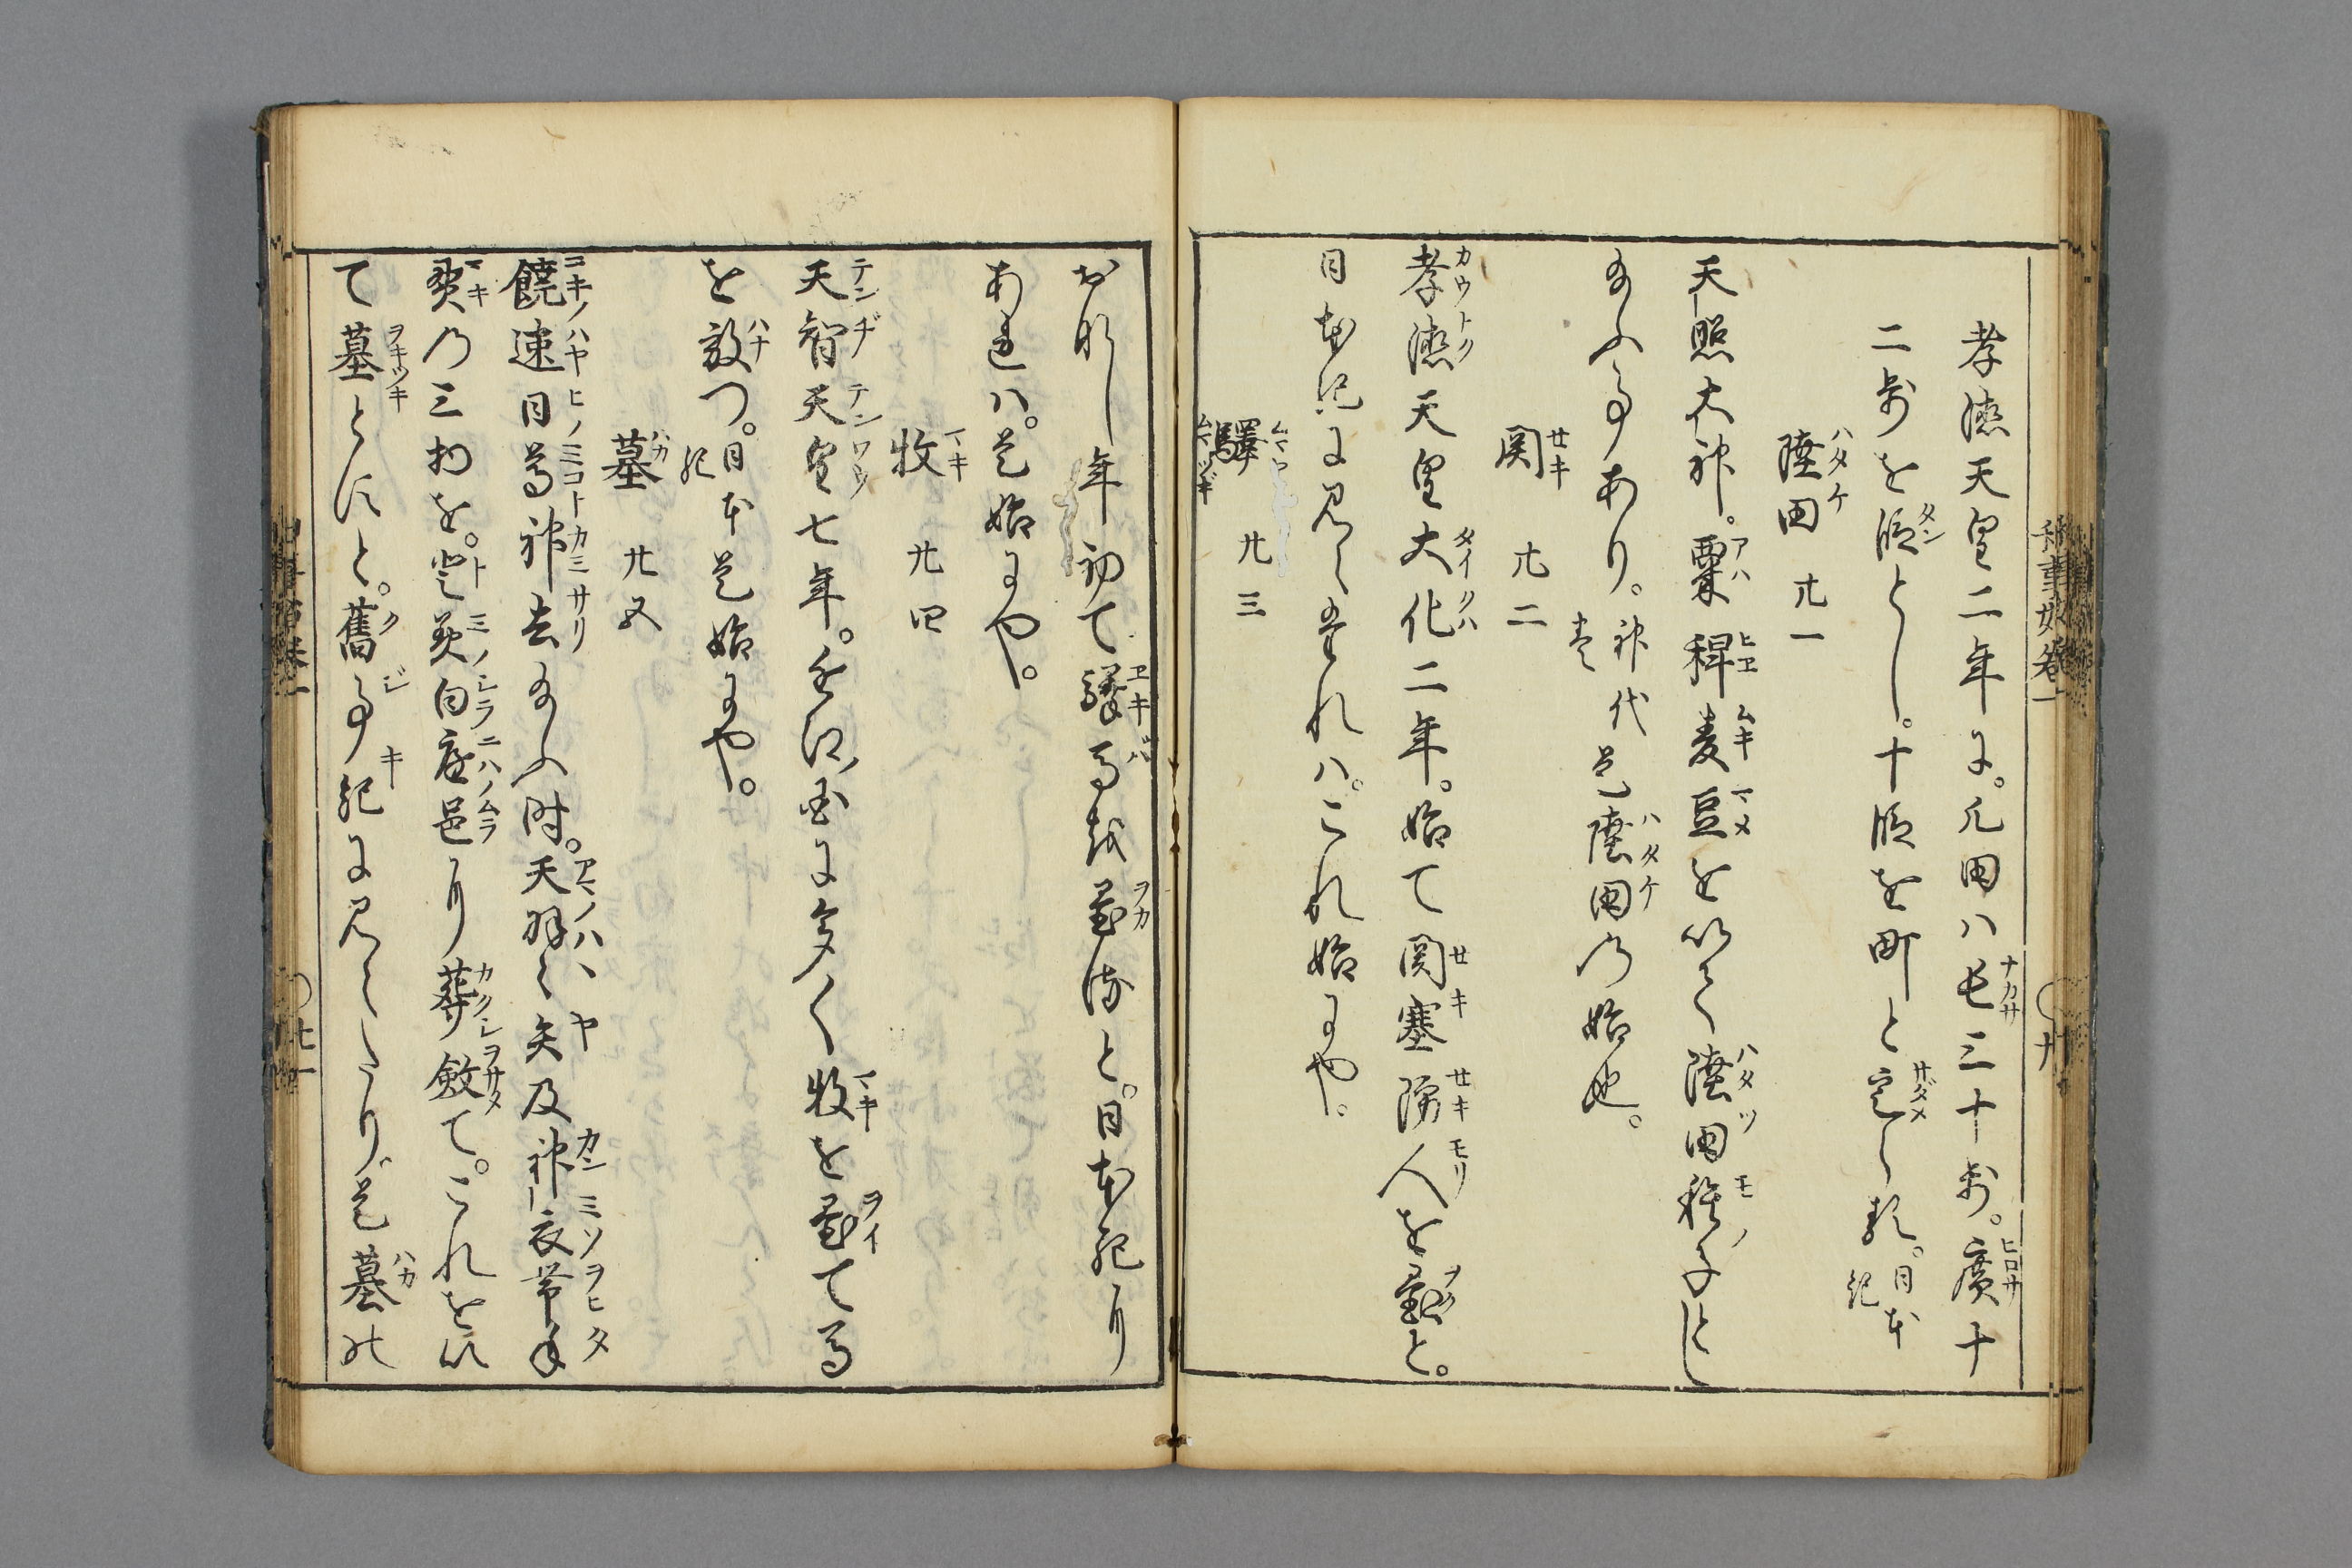 孝徳天皇二年に。凡田ハ長三十歩。廣十
二歩を段とし。十段を町と定らる。日本紀
陸田 廿一
天照大神。粟稗麦豆を以て陸田種子とし
給ふ事あり。神代巻是陸田の始也。
関 廿二
孝徳天皇大化二年。始て関塞防人を置と。
日本紀に見えたれハ。これ始にや。
驛 廿三
おなし年初て驛馬を置せ給と。日本紀に
あれハ。是始にや。
牧 廿四
天智天皇七年。近江国に多く牧を置て馬
を放つ。日本紀是始にや。
墓 廿五
饒速日尊神去給ふ時。天羽々矢及神衣帯手
貫の三物を。登美白庭邑に葬斂て。これを以
て墓とすと。舊事紀に見えたり。是墓の